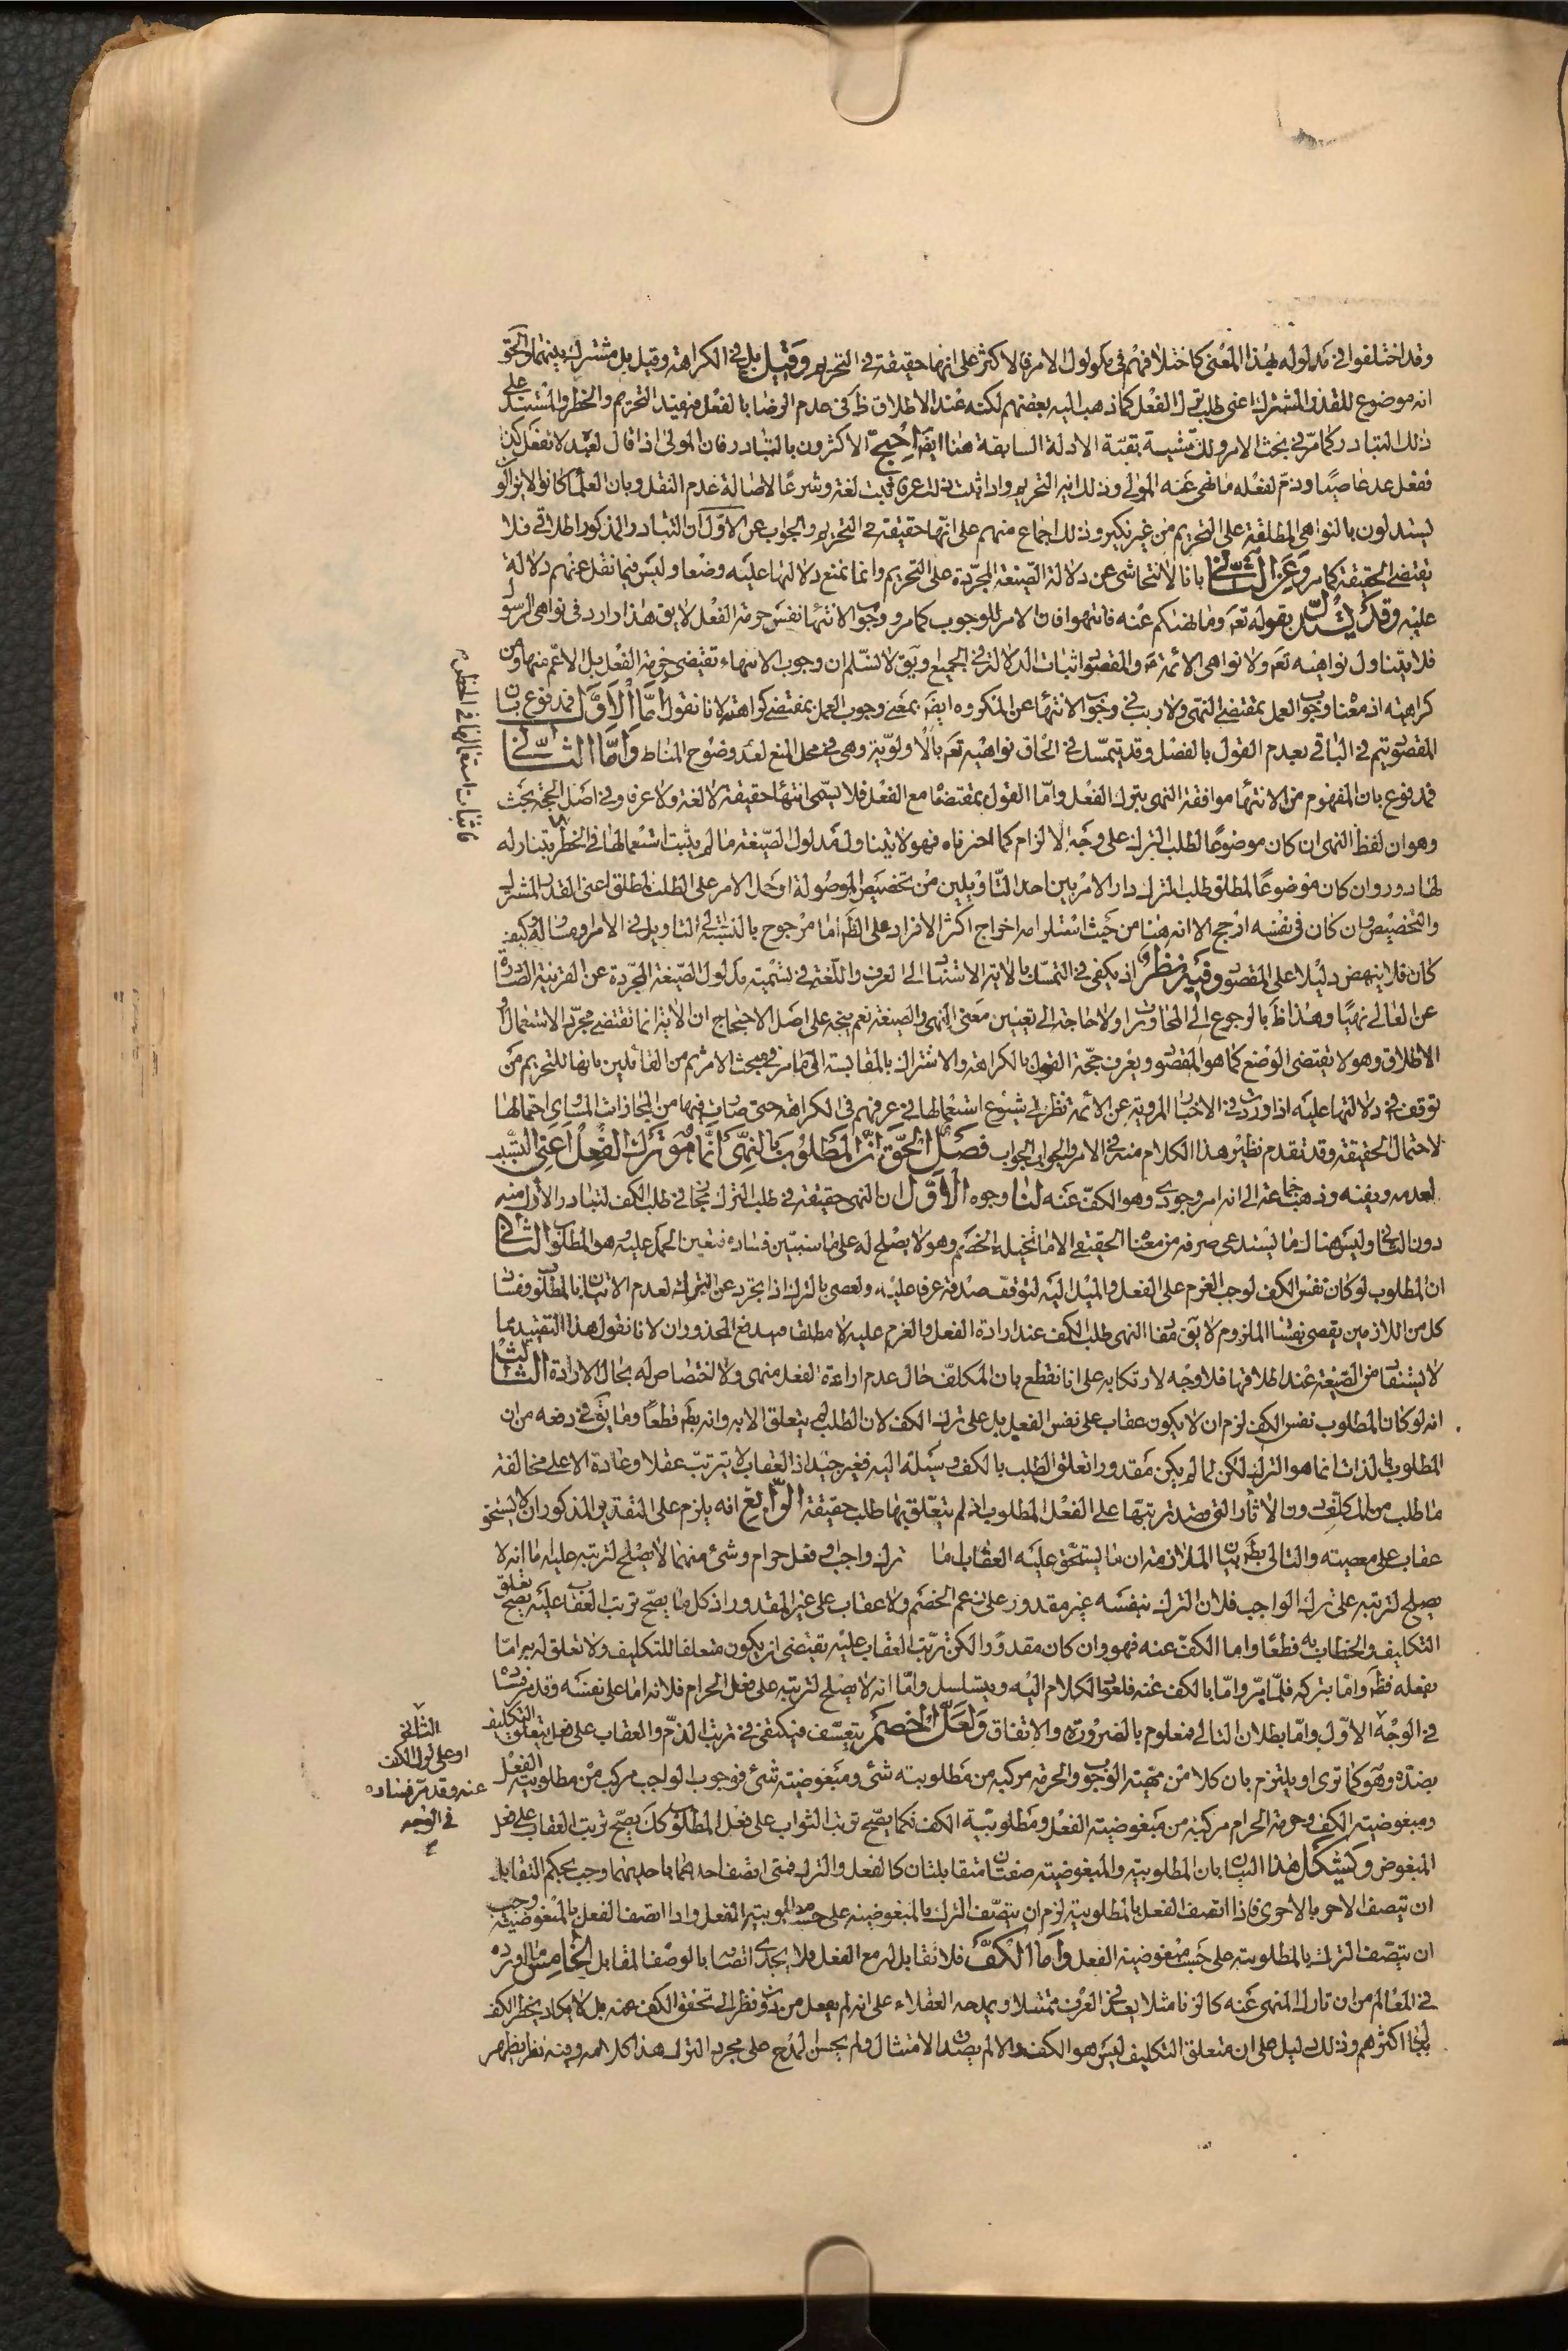 وقد اختلفوا فى مدلوله بهذا المعنى كاختلافهم فى مدلول الامر فالاكثر على انها حقيقة فى التحريم وقيل بل فى الكراهة وقيل بل مشترك بينهما والحق
انه موضوع للقدر المشترك اعنى طلب ترك الفعل كما ذهب اليه بعضهم لكنه عند الاطلاق ظ فى عدم الرضا بالفعل فيفيد التحريم والحظر والمستند على
ذلك التبادر كما مر فى بحث الامر ولك تمشية بقية الادلة السابقة هنا ايضا احتج الاكثرون بالتبادر فان المولى اذا قال لعبده لا تفعل كذا
ففعل عد عاصيا وذم لفعله ما نهى عنه المولى وذلك اية التحريم واذا ثبت ذلك عرفا ثبت لغة وشرعا لاصالة عدم النقل وبان العلماء كانوا لا يزالو
يستدلون بالنواهى المطلقة على التحريم من غير نكير وذلك اجماع منهم على انها حقيقة فى التحريم والجواب عن الاول ان التبادر المذكور اطلاقى فلا
يقتضى الحقيقة كما مر وعن الثانى بانا لا نتحاشى عن دلالة الصيغة المجردة على التحريم وانما نمنع دلالتها عليه وضعا وليس فيما نقل عنهم دلالة
عليه وقد يستدل بقوله تعه وما نهيكم عنه فانتهوا فان الامر للوجوب كما مر ووجوب الانتهاء نفس حرمة الفعل لا يق هذا وارد فى نواهى الرسول
فلا يتناول نواهيه تعه ولا نواهى الائمة ع والمقصود اثبات الدلالة فى الجميع ويق لا نسلم ان وجوب الانتهاء تقتضى حرمة الفعل بل الاعم منها ومن
كراهته اذ معناه وجوب العمل بمقتضى النهى ولا ريب فى وجوب الانتهاء عن المكروه ايضا بمعنى وجوب العمل بمقتضى كراهته لانا نقول اما الاول فمدفوع بان
المقصود يتم فى الباقى بعدم القول بالفصل وقد يتمسك فى الحاق نواهيه تعه بالاولوية وهى فى محل المنع لعدم وضوح المناط واما الثانى
فمدفوع بان المفهوم من الانتهاء موافقة النهى بترك الفعل واما القول بمقتضاه مع الفعل فلا يسمى انتهاء حقيقة لا لغة ولا عرفا وفى اصل الحجة بحث
وهو ان لفظ النهى ان كان موضوعا لطلب الترك على وجه الالزام كما اخترناه فهو لا يتناول مدلول الصيغة ما لم يثبت استعمالها فى الحظر يتناوله
لها دور وان كان موضوعا لمطلق طلب الترك دار الامر بين احد التاويلين من تخصيص الموصولة او حمل الامر على الطلب المطلق اعنى القدر المشترك
والتخصيص وان كان فى نفسه ارجح الا انه هنا من حيث استلزامه اخراج اكثر الافراد على الظ اما مرجوح بالنسبة الى التاويل فى الامر او مساو له وكيف
كان فلا ينهض دليلا على المقصود وفيه نظر اذ يكفى فى التمسك بالاية الاستناد الى العرف واللغة فى تسمية مدلول الصيغة المجردة عن القرينة الصادرة
عن العالى نهيا وهذا ظ بالرجوع الى المحاورات ولا حاجة الى تعيين معنى النهى والصيغة نعم يتجه على اصل الاحتجاج ان الاية انما تقتضى مجرد الاستعمال او
الاطلاق وهو لا يقتضى الوضع كما هو المقصود ويعرف حجة القول بالكراهة والاشتراك بالمقايسة الى ما مر فى مبحث الامر ثم من القائلين بانها للتحريم من
توقف فى دلالتها عليه اذا وردت فى الاخبار المروية عن الائمة نظرا الى شيوع استعمالها فى عرفهم فى الكراهة حتى صارت فيها من المجازات المساوى احتمالها
لاحتمال الحقيقة وقد تقدم نظير هذا الكلام منه فى الامر والجواب الجواب فصل الحق ان المطلوب بالنهى انما هو ترك الفعل اعنى
لعدمه وبقيه وذهب جماعة الى انه امر وجودى وهو الكف عنه لنا وجوه الاول ان النهى حقيقة فى طلب الترك مجاز فى طلب الكف لتبادر الاول منه
دون الثانى وليس هناك ما يستدعى صرفه من معناه الحقيقى الا ما تخيله الخصم وهو لا يصلح له على ما سنبين فساده فتعين الحمل عليه وهو المطلوب الثانى
ان المطلوب لو كان نفس الكف لوجب العزم على الفعل والميل اليه لتوقف صدقه عرفا عليه ولعصى بالترك اذا تجرد عن الكف لعدم الاتيان بالمطلوب وفساد
كل من اللازمين يقضى بفساد الملزوم لا يق مفاد النهى طلب الكف عند ارادة الفعل والعزم عليه لا مطلقا فيندفع المحذوران لانا نقول هذا التقييد مما
لا يستفاد من الصيغة عند اطلاقها فلا وجه لارتكابه على انا نقطع بان المكلف حال عدم ارادة الفعل منهى ولا اختصاص له بحال الارادة الثالث
انه لو كان المطلوب نفس الكف لزم ان لا يكون عقاب على نفس الفعل بل على ترك الكف لان الطلب لم يتعلق الا به وانه بط قطعا وما يق فى دفعه من ان
المطلوب بالذات انما هو الترك لكن لما لم يكن مقدورا تعلق الطلب بالكف وسيلة اليه فغير جيد اذ العقاب لا يترتب عقلا وعادة الا على مخالفة
ما طلب من المكلف دون الاثار التى قصد ترتبها على الفعل المطلوب اذ لم يتعلق بها طلب حقيقة الرابع انه يلزم على التقدير المذكور ان لا يستحق
عقاب على معصيته والتالى بط بيان الملازمة ان ما يستحق عليه العقاب اما ترك واجب او فعل حرام وشئ منهما لا يصلح لترتبه عليه اما انه لا
يصلح لترتبه على ترك الواجب فلان الترك بنفسه غير مقدور على زعم الخصم ولا عقاب على غير المقدور اذ كل ما يصح ترتب العقاب عليه يصح تعلق
التكليف والخطاب به قطعا واما الكف عنه فهو وان كان مقدورا لكن ترتب العقاب عليه يقتضى ان يكون متعلقا للتكليف ولا تعلق له به اما
بفعله فظ واما بتركه فلما مر واما بالكف عنه فلعود الكلام اليه ويتسلسل واما انه لا يصلح لترتبه على فعل الحرام فلانه اما على نفسه وقد مر فساده
فى الوجه الاول واما بطلان التالى فمعلوم بالضرورة والاتفاق ولعل الخصم يتعسف فيكتفى فى ترتب الذم والعقاب على فعل بتعلق التكليف
بضده وهو كما ترى او يلتزم بان كلا من مهية الوجوب والحرمة مركبة من مطلوبية شئ ومبغوضية شئ فوجوب الواجب مركب من مطلوبية الفعل
ومبغوضية الكف وحرمة الحرام مركبة من مبغوضية الفعل ومطلوبية الكف فكما يصح ترتب الثواب على فعل المطلوب كك يصح ترتب العقاب على فعل
المبغوض ويشكل هذا البيان بان المطلوبية والمبغوضية صفتان متقابلتان كالفعل والترك فمتى اتصف احدهما باحديهما وجب بحكم التقابل
ان تتصف الاخرى بالاخرى فاذا اتصف الفعل بالمطلوبية لزم ان يتصف الترك بالمبغوضية على حسب مطلوبية الفعل واذا اتصف الفعل بالمبغوضية وجب
ان يتصف الترك بالمطلوبية على حسب مبغوضية الفعل واما الكف فلا تقابل له مع الفعل فلا يجدى اتصافه بالوصف المقابل الخامس ما اورده
فى المعالم من ان تارك المنهى عنه كالزنا مثلا يعد فى العرف ممتثلا ويمدحه العقلاء على انه لم يفعل من دون نظر الى تحقق الكف عنه بل لا يكاد يخطر الكف
ببال اكثرهم وذلك دليل على ان متعلق التكليف ليس هو الكف والا لم يصدق الامتثال ولم يحسن المدح على مجرد الترك هذا كلامه وفيه نظر يظهر
فاثبات استعمالها فى الحظر
الثانى
او على ترك الكف
عنه وقد مر فساده
فى الوجه